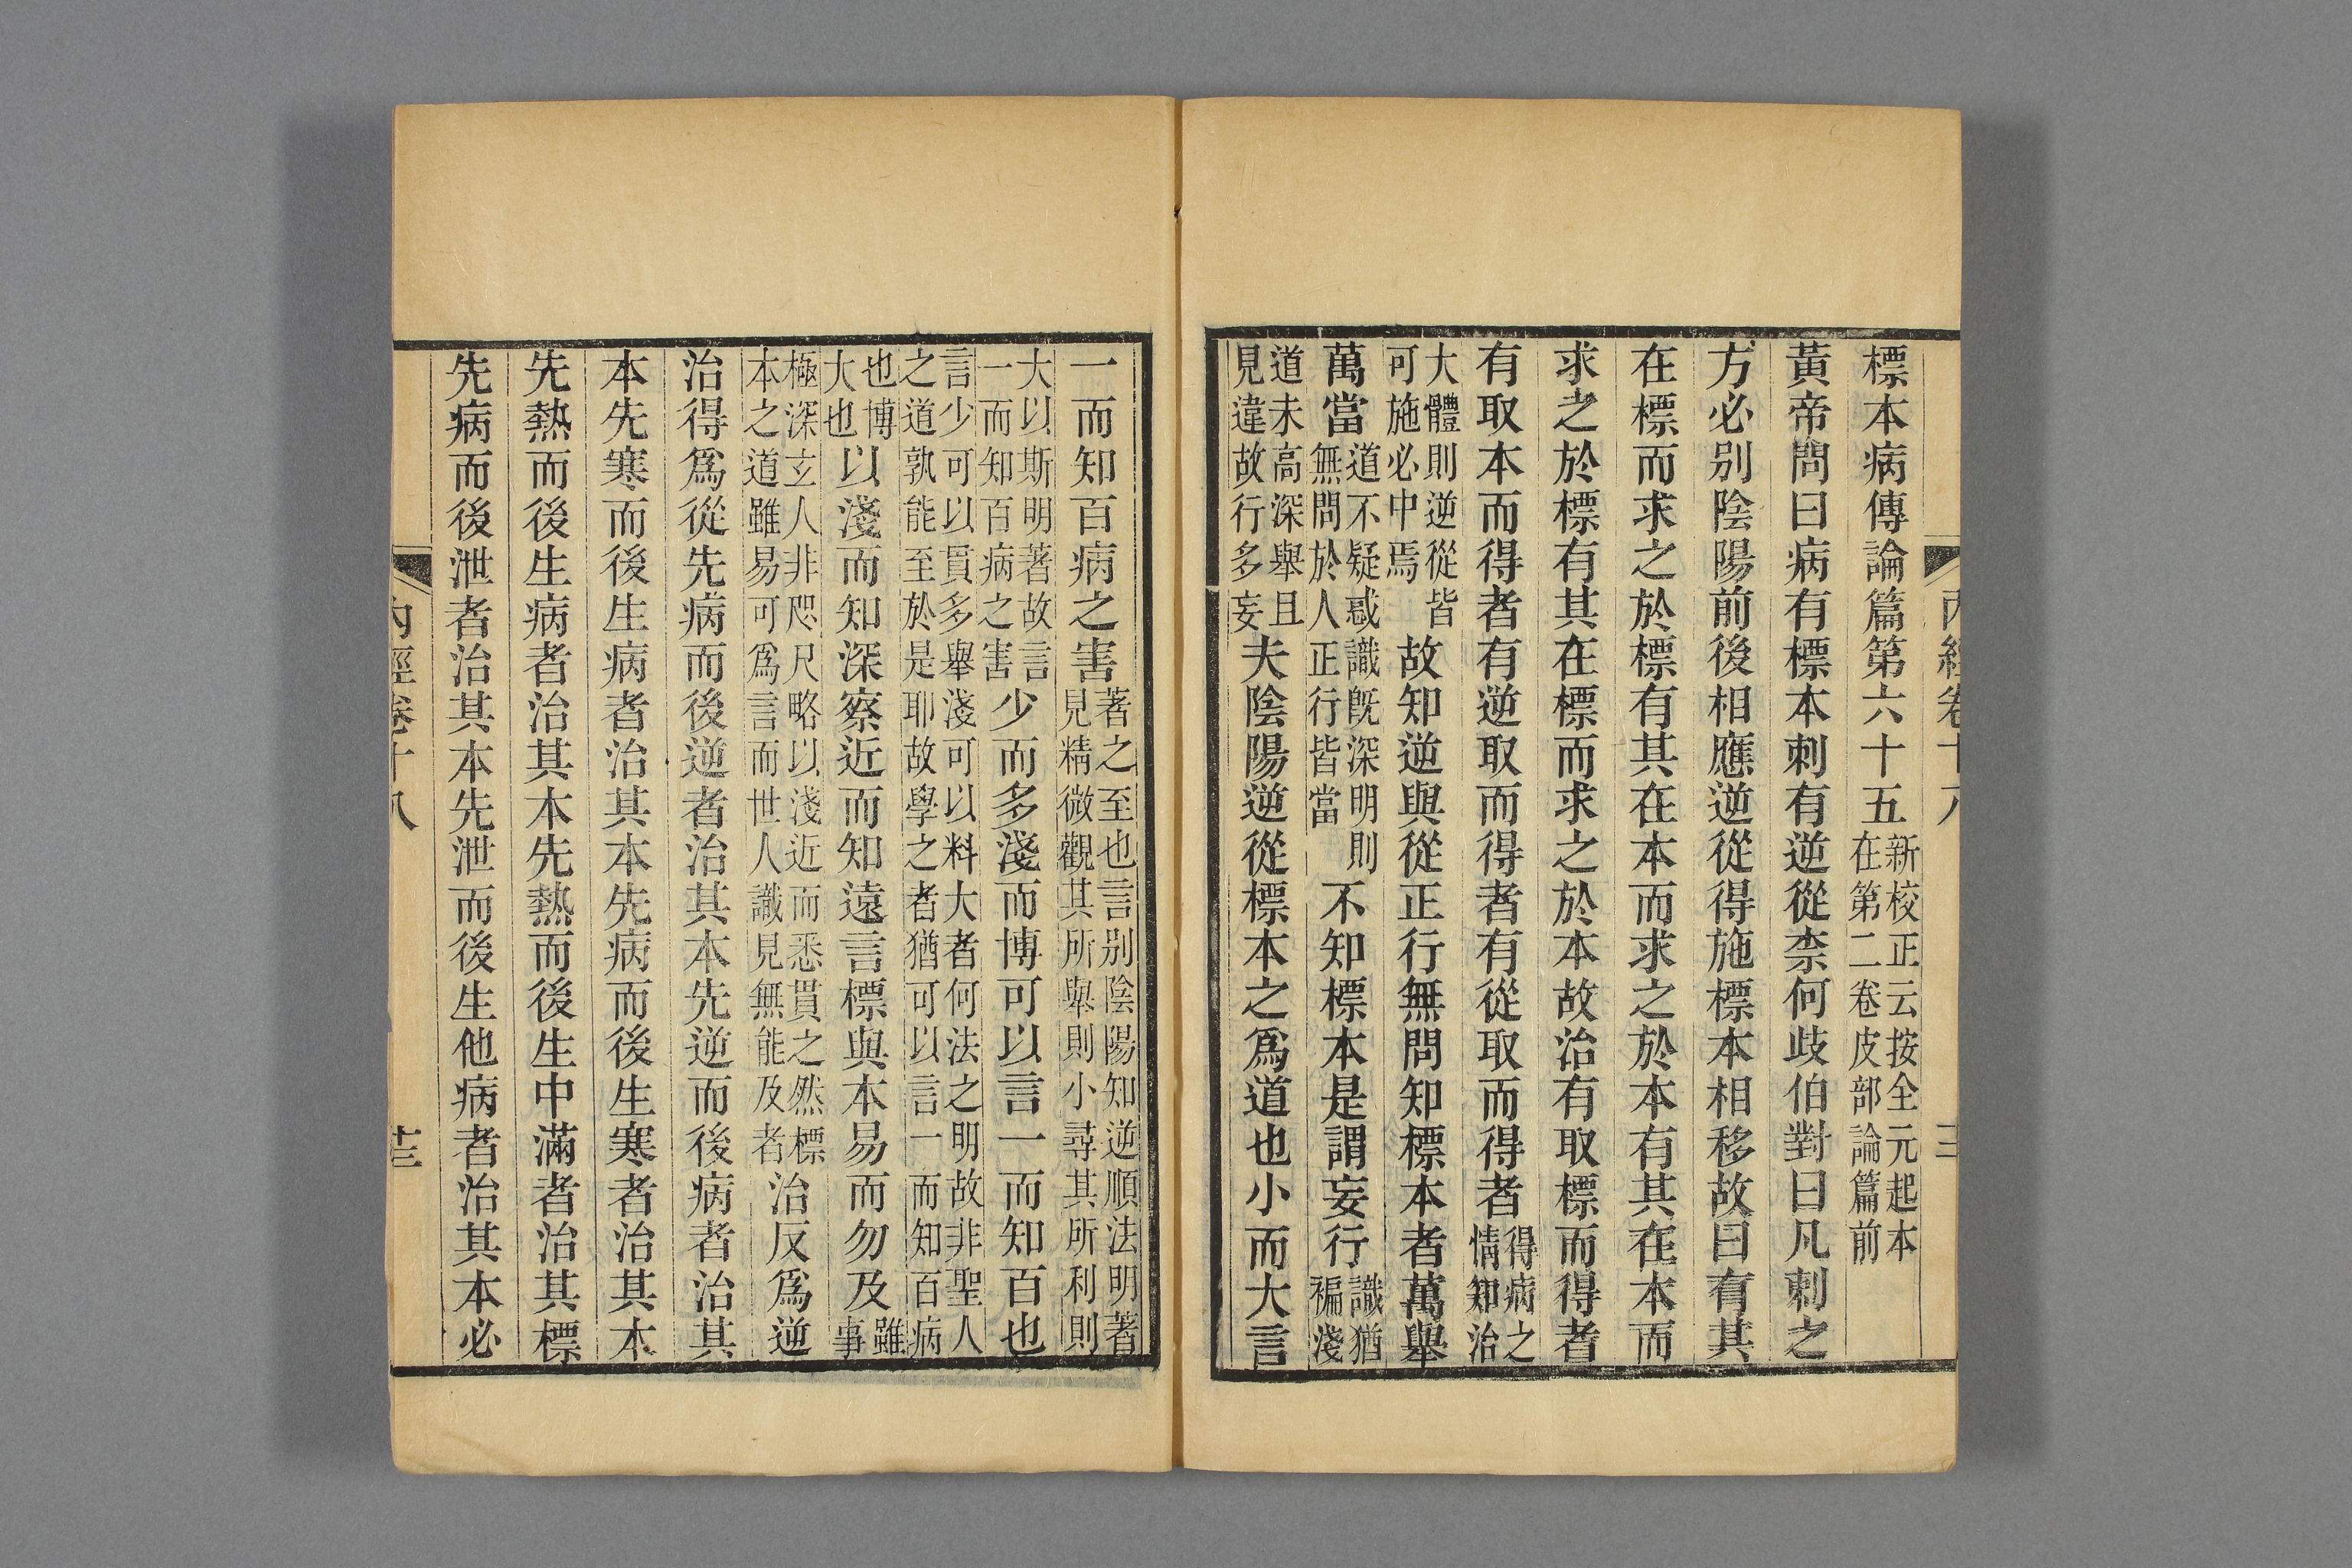 標本病傳論篇第六十五新校正云按全元起本在第二卷皮部論篇前
黃帝問曰病有標本刺有逆從柰何歧伯對曰凡刺之
方必别陰陽前後相應逆從得施標本相移故曰有其
在標而求之於標有其在本而求之於本有其在本而
求之於標有其在標而求之於本故治有取標而得者
有取本而得者有逆取而得者有從取而得者得病之情知治
大體則逆從皆可施必中焉故知逆與從正行無問知標本者萬舉
萬當道不疑惑識既深明則無問於人正行皆當不知標本是謂妄行識猶褊淺
道未高深舉且見違故行多妄夫陰陽逆從標本之爲道也小而大言
一而知百病之害著之至也言别陰陽知逆順法明著見精微觀其所舉則小尋其所利則
大以斯明著故言一而知百病之害少而多淺而博可以言一而知百也
言少可以貫多舉淺可以料大者何法之明故非聖人之道孰能至於是耶故學之者猶可以言一而知百病
也博大也以淺而知深察近而知遠言標與本易而勿及雖事
極深玄人非咫尺略以淺近而悉貫之然標本之道雖易可爲言而世人識見無能及者治反爲逆
治得爲從先病而後逆者治其本先逆而後病者治其
本先寒而後生病者治其本先病而後生寒者治其本
先熱而後生病者治其本先熱而後生中滿者治其標
先病而後泄者治其本先泄而後生他病者治其本必
内經卷十八